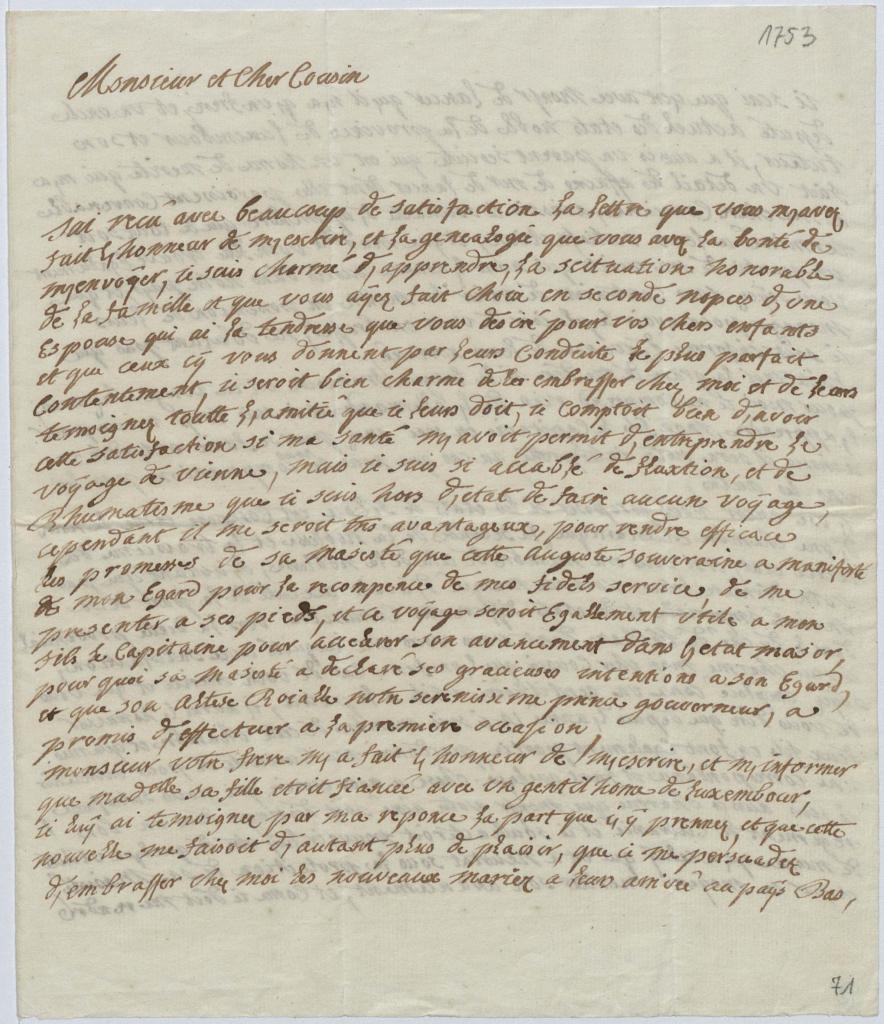 1753
Monsieur et Cher Cousin
Jai recû avec beaucoup de satisfaction La Lettre que vous m,avez
fait L,honneur de m,escrire, et La genealogie que vous avez La bonté de
m,envoÿer, ie suis charmé d,apprendre La scituation honorable
de La famille et que vous aÿez fait choix en seconde nopces d,une
Espouse qui ai La tendresse que vous desiré pour vos chers enfants
et que ceux cÿ vous donnent par Leurs Conduite Le plus parfait
Contentement, ie seroit bien charmé de Les embrasser chez moi et de Leurs
temoignez toutte L,amitié que ie Leurs doit, ie comptoit bien d,avoir
cette satisfaction si ma santé m,avoit permit d,entreprendre Le
voÿage de vienne, mais ie suis si accablé de fluxtion, et de
Rhumatisme que ie suis hors d,etat de faire aucun voÿage,
cependant il me seroit tres avantageux, pour rendre efficace
Les promesses de sa Majesté que cette Auguste souveraine a manifesté
a mon Egard pour La recompence de mes fidels service, de me
presenter a ses pieds, et ce voÿage seroit Egallement utile a mon
fils Le Capitaine pour accelerer son avancement dans L,etat major,
pour quoi sa Majesté a declaré ses gracieuses intentions a son Egard,
et que son Altese Roialle notre serenissime prince gouverneur, a
promis d,effectuer a La premiere occasion
monsieur votre frere m,a fait L,honneur de m,escrire, et m,informer
que madelle sa fille etoit fiancée avec un gentil home de Luxembour,
ie Luÿ ai temoignez par ma reponce La part que i,ÿ prennez, et que cette
nouvelle me faisoit d,autant plus de plaisir, que ie me persuadez
d,embrasser chez moi Les nouveaux mariez a Leurs arrivée au paÿs Bas,
71